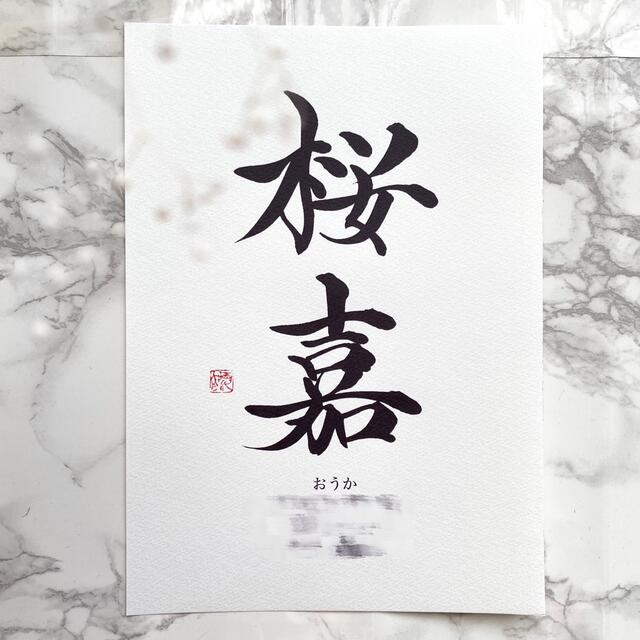 桜
嘉
おうか